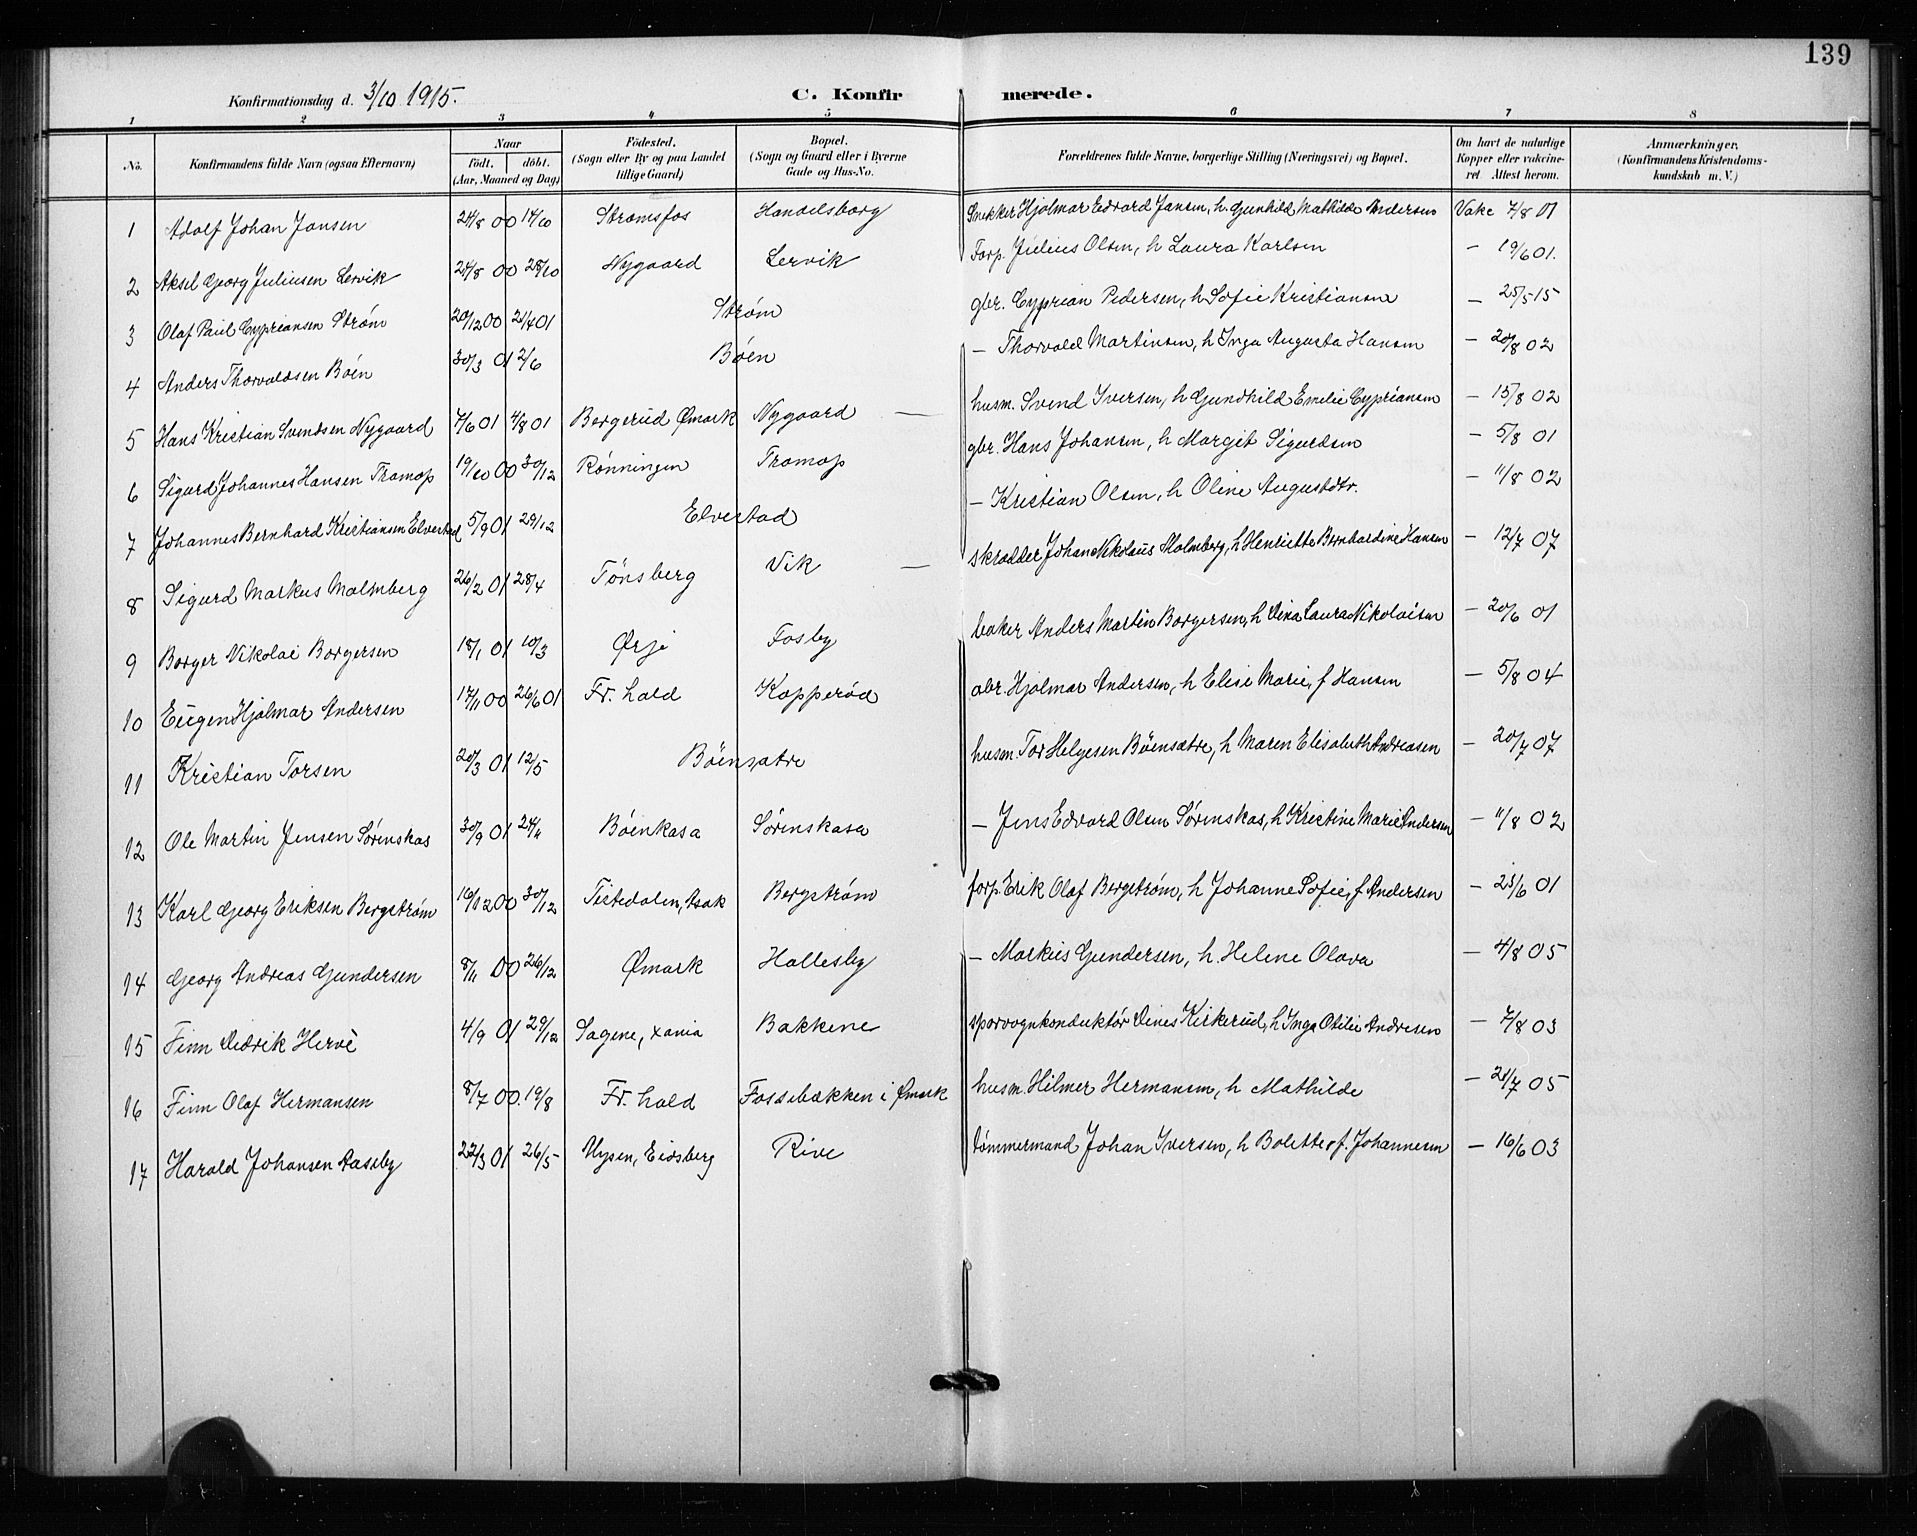 139
Konfirmationsdag d. 3/10 1915.
C. Konfirmerede.
1 2 3 4 5 6 7 8
No. Konfirmandens fulde Navn (ogsaa Efternavn) Naar födt. döbt. (Aar, Maaned og Dag) Födested. (Sogn eller By og paa Landet tillige Gaard) Bopæl. (Sogn og Gaard eller i Byerne Gade og Hus-No. Forældrenes fulde Navne, borgerlige Stilling (Næringsvei) og Bopæl. Om havt de naturlige Kopper eller vakcineret. Attest herom. Anmærkninger, (Konfirmandens Kristendomskundskab m. V.)
1 Adolf Johan Jansen 24/8 00 14/10 Strømsfos Handelsborg Snekker Hjalmar Edvard Jansen, h. Gunhild Mathilde Andersen Vakc 7/8 01
2 Aksel Georg Juliusen Lervik 24/8 00 28/10 Nygaard Lervik Forp. Julius Olsen, h Laura Karlsen — 19/6 01.
3 Olaf Paul Cypriansen Strøm 20/12 00 21/4 01 Strøm gbr. Cyprian Pedersen, h Sofie Kristiansen — 25/5 15
4 Anders Thorvaldsen Böen 30/3 01 2/6 Böen — Thorvald Martinsen, h Inga Augusta Hansen — 20/8 02
5 Hans Kristian Svendsen Nygaard 7/6 01 4/8 01 Bergerud Ømark Nygaard — husm. Svend Iversen, h Gundhild Emilie Cypriansen — 15/8 02
6 Sigurd Johannes Hansen Tramop 19/10 00 30/12 Rønningen Tramop gbr. Hans Johansen, h Margit Sigurdsen — 5/8 01
7 Johannes Bernhard Kristiansen Elvestad 5/9 01 29/12 Elvestad — Kristian Olsen, h Oline Augustdtr. — 11/8 02
8 Sigurd Markus Malmberg 26/2 01 28/4 Tönsberg Vik — skrædder Johan Nikolaus Malmberg, h Henriette Bernhardine Hansen — 12/7 07
9 Borger Nikolai Borgersen 18/1 01 10/3 Ørje Fosby baker Anders Martin Borgersen, h Dina Laura Nikolaisen — 20/6 01
10 Eugen Hjalmar Andersen 17/11 00 26/6 01 Fr. hald Kopperød abr. Hjalmar Andersen, h Elise Marie, f Hansen — 5/8 04
11 Kristian Torsen 20/3 01 12/5 Böensætre husm. Tor Helgesen Böensætre, h Maren Elisabeth Andreasen — 20/7 07
12 Ole Martin Jensen Sørenskas 30/9 01 24/11 Böenkasa Sørenskasa — Jens Edvard Olsen Sørenskas, h Kristine Marie Andersen — 11/8 02
13 Karl Georg Eriksen Bergstrøm 10/12 00 30/12 Tistedalen, Asak Bergstrøm forp. Erik Olaf Bergstrøm, h Johanne Sofie, f Andersen — 23/6 01
14 Georg Andreas Gundersen 8/11 00 26/12 Ømark Hallesby — Markus Gundersen, h. Helene Olava — 4/8 05
15 Finn Didrik Hervè 4/9 01 29/12 Sagene, Xania Bakkene sporvognkonduktør Dines Kirkerud, h Inga Otilie Andresen — 7/8 03
16 Finn Olaf Hermansen 8/7 00. 19/8 Fr. hald Fossebækken i Ømark husm. Hilmer Hermansen, h Mathilde — 21/7 05
17 Harald Johansen Aaseby 22/3 01 26/5 Uysen, Eidsberg Rive tømmermand Johan Iversen, h Bolette f. Johannesen — 16/6 03